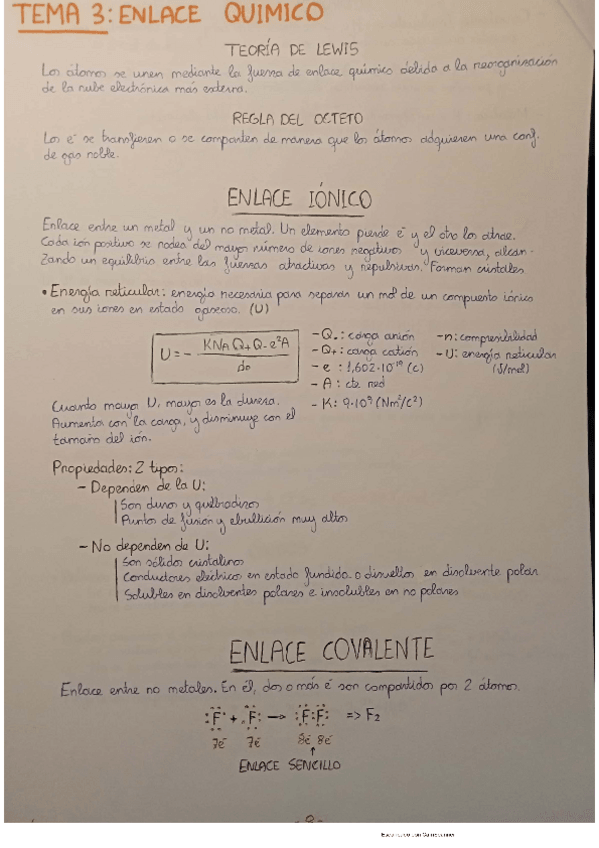 TEMA 3: ENLACE QUIMICO
TEORÍA DE LEWIS
Los átomos se unen mediante la fuerza de enlace químico debida a la reorganización
de la nube electrónica más externa.
REGLA DEL OCTETO
Los e⁻ se transfieren o se comparten de manera que los átomos adquieren una conf.
de gas noble.
ENLACE IÓNICO
Enlace entre un metal y un no metal. Un elemento pierde e⁻ y el otro los atrae.
Cada ión positivo se rodea del mayor número de iones negativos y viceversa, alcan-
zando un equilibrio entre las fuerzas atractivas y repulsivas. Forman cristales.
• Energía reticular: energía necesaria para separar un mol de un compuesto iónico
en sus iones en estado gaseoso. (U)
U = - KNA Q+ Q- e² A / do
- Q-: carga anión
- Q+: carga catión
- e: 1,602·10⁻¹⁹ (C)
- A: cte red
- K: 9·10⁹ (Nm²/C²)
- n: compresibilidad
- U: energía reticular
(J/mol)
Cuanto mayor U, mayor es la dureza.
Aumenta con la carga, y disminuye con el
tamaño del ión.
Propiedades: 2 tipos:
- Dependen de la U:
Son duros y quebradizos
Puntos de fusión y ebullición muy altos
- No dependen de U:
Son sólidos cristalinos
Conductores eléctrico en estado fundido o disueltos en disolvente polar
Solubles en disolventes polares e insolubles en no polares
ENLACE COVALENTE
Enlace entre no metales. En él, dos o más e⁻ son compartidos por 2 átomos.
F + F → F:F => F₂
7e⁻ 7e⁻ 8e⁻ 8e⁻
↑
ENLACE SENCILLO